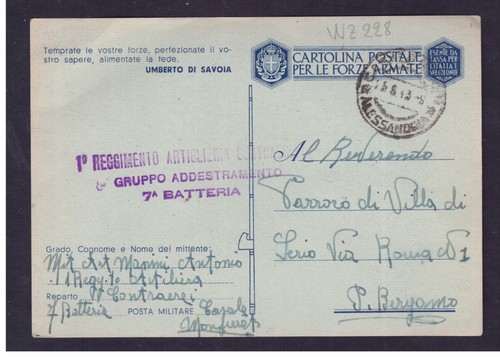 WZ 228
Temprate le vostre forze, perfezionate il vo-
stro sapere, alimentate la fede.
UMBERTO DI SAVOIA
CARTOLINA POSTALE
PER LE FORZE ARMATE
ESENTE DA
TASSA PER
L'ITALIA E
ALESSANDRIA
1º REGGIMENTO ARTIGLIERIA
GRUPPO ADDESTRAMENTO
7ª BATTERIA
Al Reverendo
Parroco di Villa di
Serio Via Roma Nº 1
P. Bergamo
Grado, Cognome e Nome del mittente:
Art Marini Antonio
1 Regg.to Artiglieria
Reparto Contraerei
7 Batteria POSTA MILITARE Casale
Monferrato